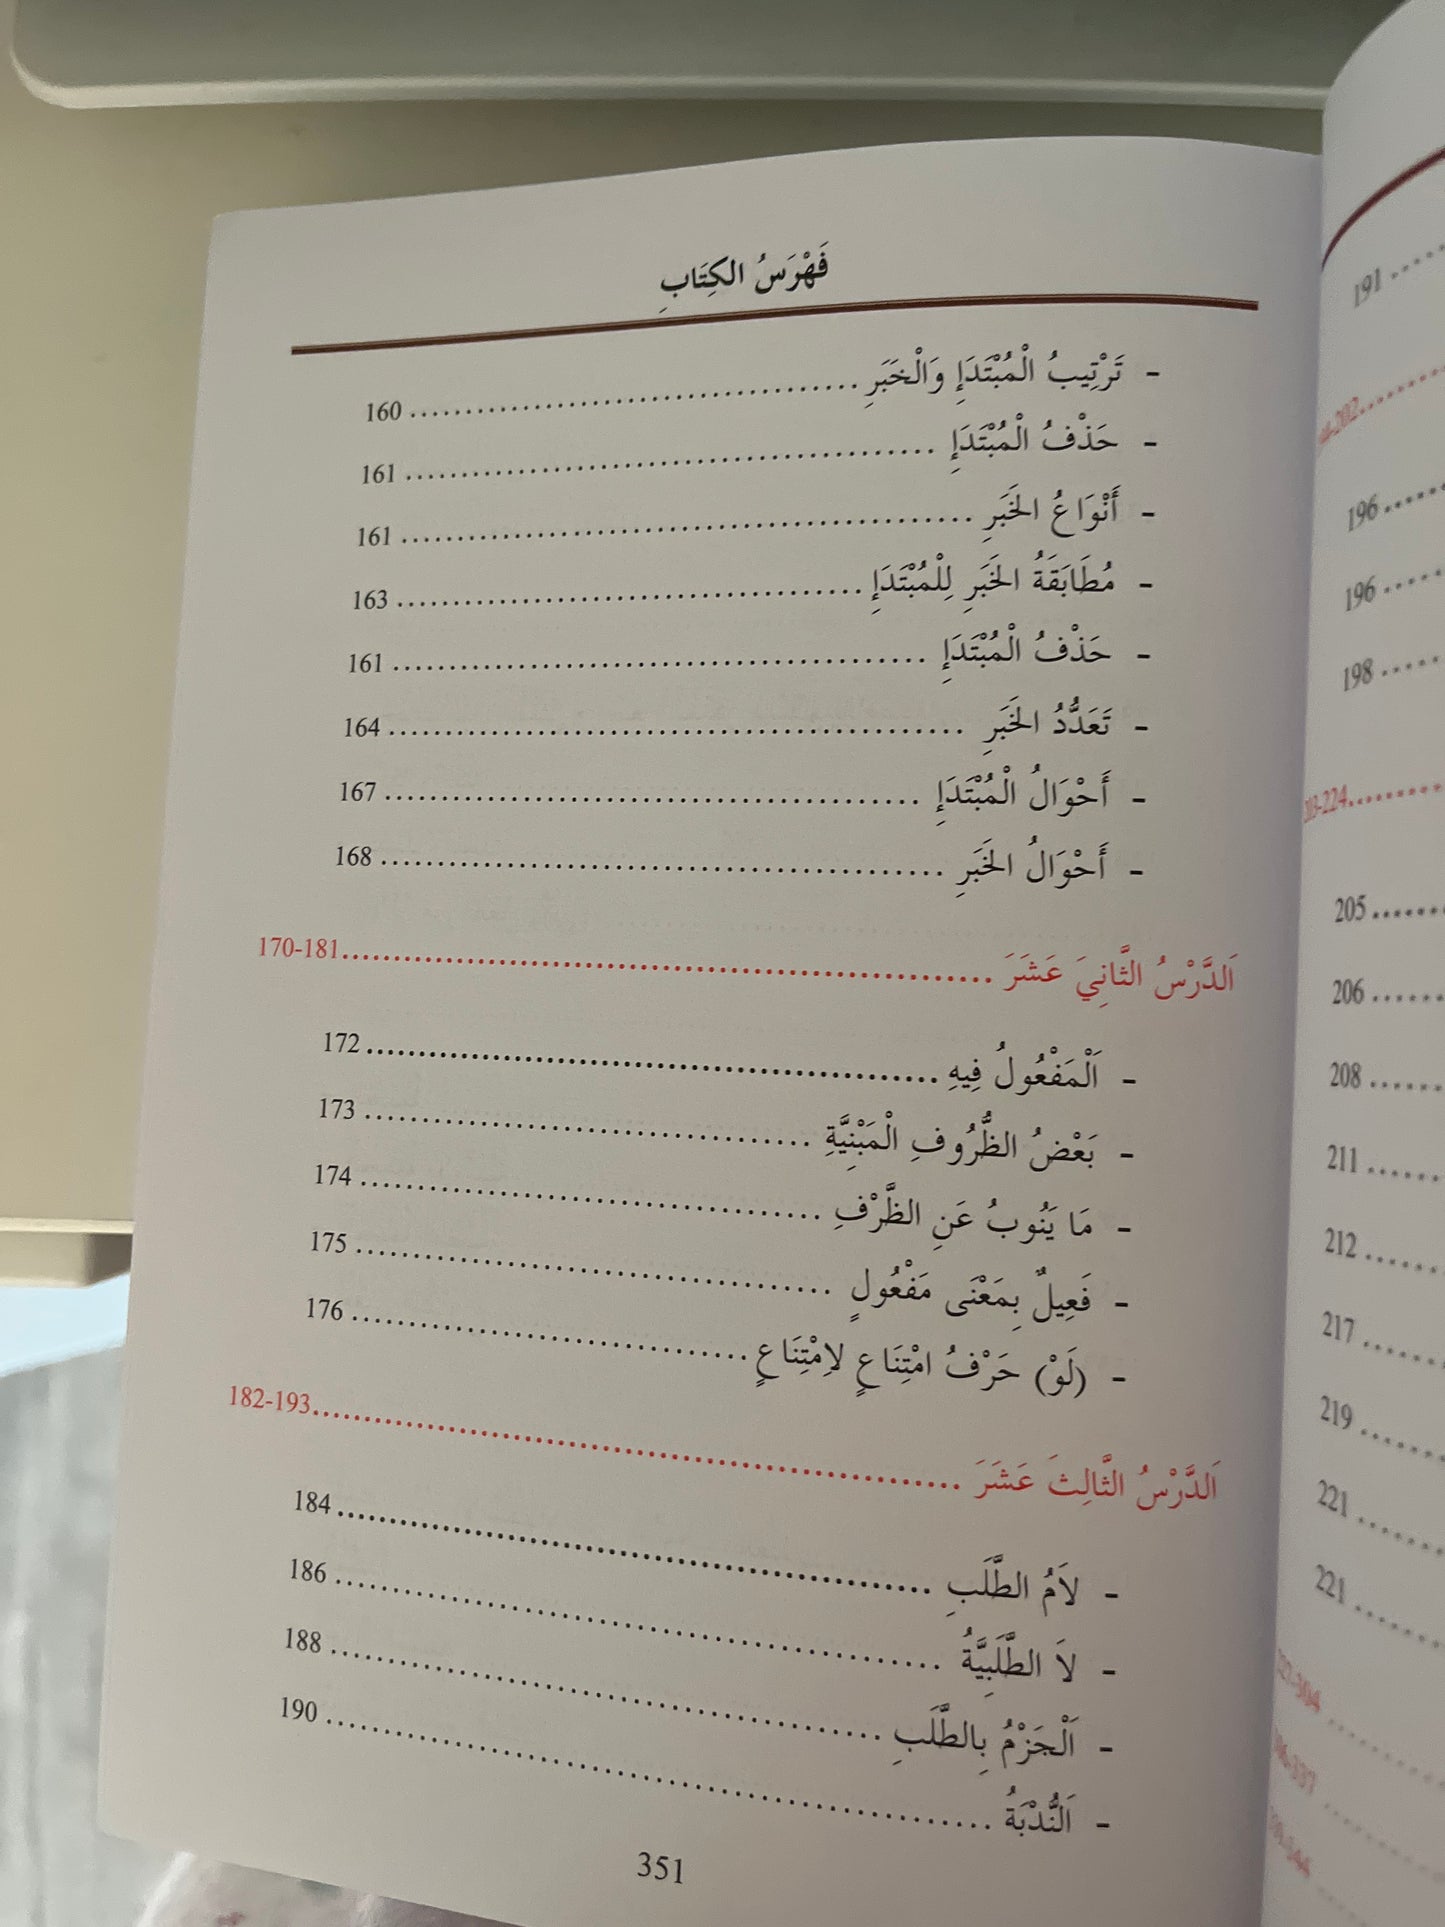 فَهْرَسُ الكِتَابِ
- تَرْتِيبُ الْمُبْتَدَإِ وَالْخَبَرِ ........................................ 160
- حَذْفُ الْمُبْتَدَإِ ........................................ 161
- أَنْوَاعُ الخَبَرِ ........................................ 161
- مُطَابَقَةُ الخَبَرِ لِلْمُبْتَدَإِ ........................................ 163
- حَذْفُ الْمُبْتَدَإِ ........................................ 161
- تَعَدُّدُ الخَبَرِ ........................................ 164
- أَحْوَالُ الْمُبْتَدَإِ ........................................ 167
- أَحْوَالُ الخَبَرِ ........................................ 168
اَلدَّرْسُ الثَّانِيَ عَشَرَ ........................................ 170-181
- اَلْمَفْعُولُ فِيهِ ........................................ 172
- بَعْضُ الظُّرُوفِ الْمَبْنِيَّةِ ........................................ 173
- مَا يَنُوبُ عَنِ الظَّرْفِ ........................................ 174
- فَعِيلٌ بِمَعْنَى مَفْعُولٍ ........................................ 175
- (لَوْ) حَرْفُ امْتِنَاعٍ لاِمْتِنَاعٍ ........................................ 176
اَلدَّرْسُ الثَّالِثَ عَشَرَ ........................................ 182-193
- لاَمُ الطَّلَبِ ........................................ 184
- لاَ الطَّلَبِيَّةُ ........................................ 186
- اَلْجَزْمُ بِالطَّلَبِ ........................................ 188
- اَلنُّدْبَةُ ........................................ 190
351
191
196
196
198
205
206
208
211
212
217
219
221
221